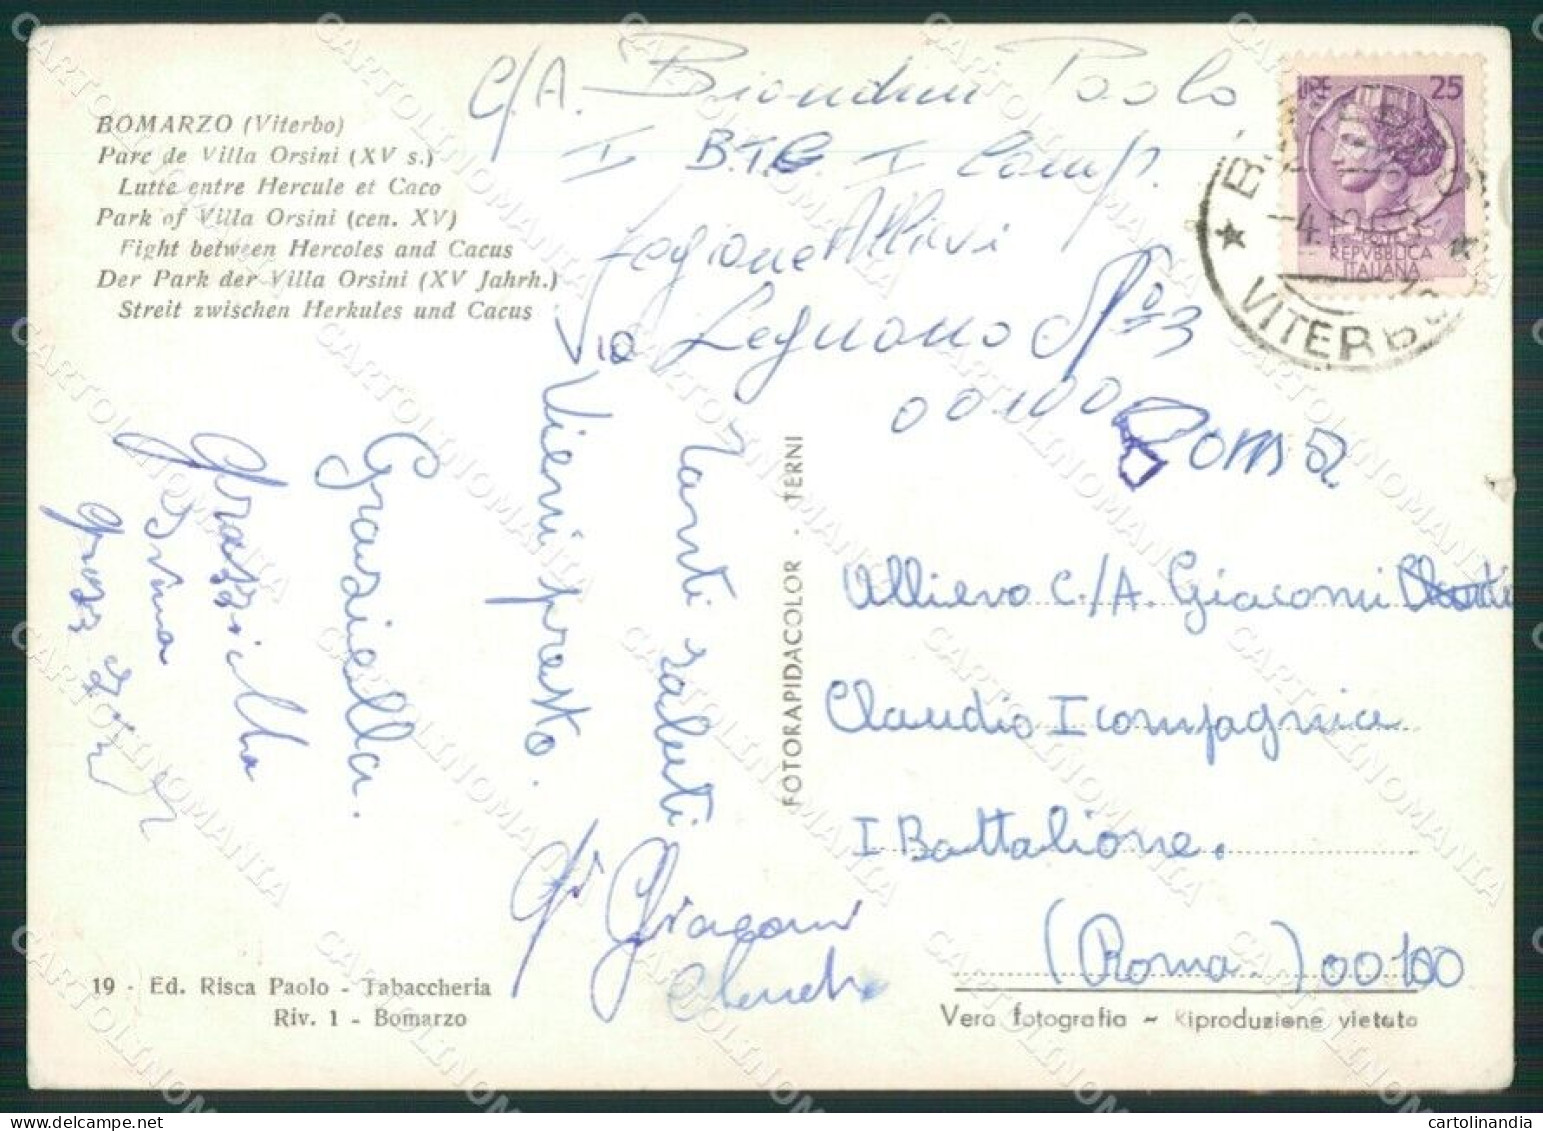 BOMARZO (Viterbo)
Parc de Villa Orsini (XV s.)
Lutte entre Hercule et Caco
Park of Villa Orsini (cen. XV)
Fight between Hercoles and Cacus
Der Park der Villa Orsini (XV Jahrh.)
Streit zwischen Herkules und Cacus
C/A. Biondini Paolo
I B.T.G I Comp.
Legione Allievi
Via Legnano N° 3
00100
Roma
LIRE 25
POSTE
REPVBBLICA
ITALIANA
VITERBO
Tanti saluti
Vieni presto.
Graziella.
Graziella
Irma
FOTORAPIDACOLOR - TERNI
Allievo C/A. Giacomi
Claudio I compagnia
I Battalione.
(Roma.) 00100
Giacomi
Claudio
19 - Ed. Risca Paolo - Tabaccheria
Riv. 1 - Bomarzo
Vera fotografia ~ Riproduzione vietata
CARTOLINOMANIA
cartolinandia